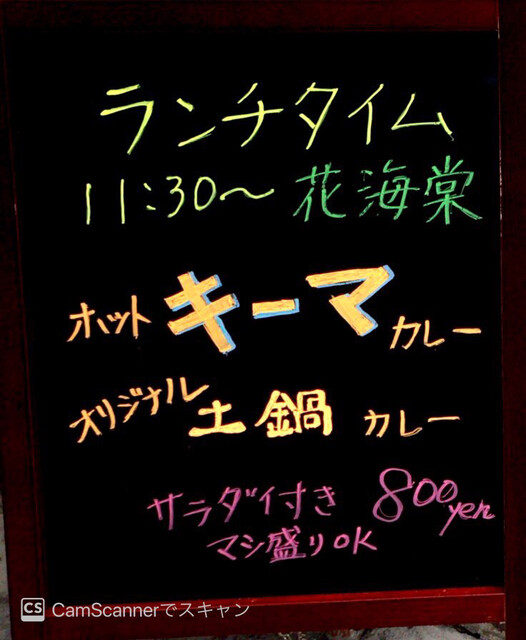 ランチタイム
11:30～ 花海棠
ホット キーマ カレー
オリジナル 土鍋 カレー
サラダイ付き 800yen
マシ盛りOK
CS CamScannerでスキャン